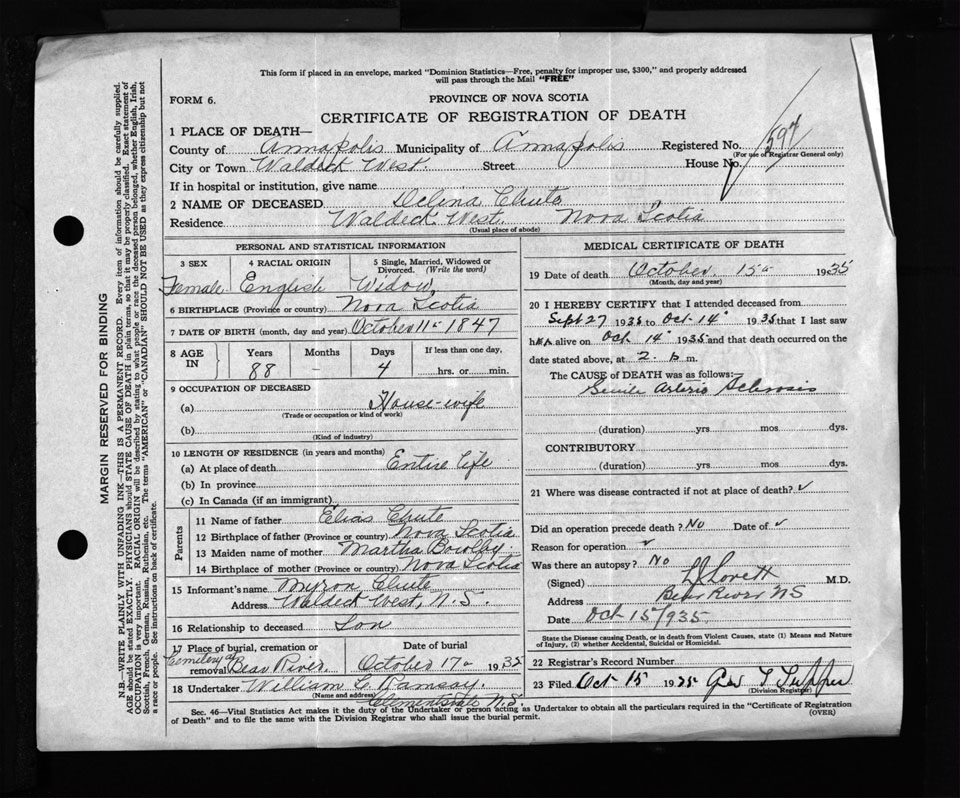 This form if placed in an envelope, marked "Dominion Statistics—Free, penalty for improper use, $300," and properly addressed
will pass through the Mail "FREE"
FORM 6.
PROVINCE OF NOVA SCOTIA
CERTIFICATE OF REGISTRATION OF DEATH
1 PLACE OF DEATH—
County of Annapolis Municipality of Annapolis Registered No. 1597
(For use of Registrar General only)
City or Town Waldeck West. Street House No.
If in hospital or institution, give name
2 NAME OF DECEASED Delina Chute
Residence Waldeck West. Nova Scotia
(Usual place of abode)
PERSONAL AND STATISTICAL INFORMATION
3 SEX 4 RACIAL ORIGIN 5 Single, Married, Widowed or
Divorced. (Write the word)
Female English Widow
6 BIRTHPLACE (Province or country) Nova Scotia
7 DATE OF BIRTH (month, day and year) October 11 1847
8 AGE IN Years Months Days If less than one day,
88 - 4 hrs. or min.
9 OCCUPATION OF DECEASED
(a) House-wife
(Trade or occupation or kind of work)
(b)
(Kind of industry)
10 LENGTH OF RESIDENCE (in years and months)
(a) At place of death Entire life
(b) In province
(c) In Canada (if an immigrant)
Parents
11 Name of father Elias Chute
12 Birthplace of father (Province or country) Nova Scotia
13 Maiden name of mother Martha Bowlby
14 Birthplace of mother (Province or country) Nova Scotia
15 Informant's name Myron Chute
Address Waldeck West, N.S.
16 Relationship to deceased Son
17 Place of burial, cremation or Date of burial
removal Cemetery at Bear River. October 17 1935
18 Undertaker William C. Ramsay.
(Name and address) Clementsvale N.S.
MEDICAL CERTIFICATE OF DEATH
19 Date of death October 15 1935
(Month, day and year)
20 I HEREBY CERTIFY that I attended deceased from
Sept 27 1935 to Oct 14 1935 that I last saw
her alive on Oct 14 1935 and that death occurred on the
date stated above, at 2. p m.
The CAUSE of DEATH was as follows:
Senile Arterio Sclerosis
(duration) yrs mos dys.
CONTRIBUTORY
(duration) yrs. mos. dys.
21 Where was disease contracted if not at place of death?
Did an operation precede death? No Date of
Reason for operation
Was there an autopsy? No
(Signed) Lovett M.D.
Address Bear River NS
Date Oct 15/935
State the Disease causing Death, or in death from Violent Causes, state (1) Means and Nature
of Injury, (2) whether Accidental, Suicidal or Homicidal.
22 Registrar's Record Number
23 Filed Oct 15 1935 Tupper
(Division Registrar)
Sec. 46—Vital Statistics Act makes it the duty of the Undertaker or person acting as Undertaker to obtain all the particulars required in the "Certificate of Registration
of Death" and to file the same with the Division Registrar who shall issue the burial permit.
(OVER)
MARGIN RESERVED FOR BINDING
N.B.—WRITE PLAINLY WITH UNFADING INK—THIS IS A PERMANENT RECORD. Every item of information should be carefully supplied.
AGE should be stated EXACTLY. PHYSICIANS should STATE CAUSE OF DEATH in plain terms, so that it may be properly classified. Exact statement of
OCCUPATION is very important. RACIAL ORIGIN will be described by stating to what people or race the deceased person belonged, whether English, Irish,
Scottish, French, German, Russian, Ruthenian, etc. The terms "AMERICAN" or "CANADIAN" SHOULD NOT BE USED as they express citizenship but not
a race or people. See instructions on back of certificate.